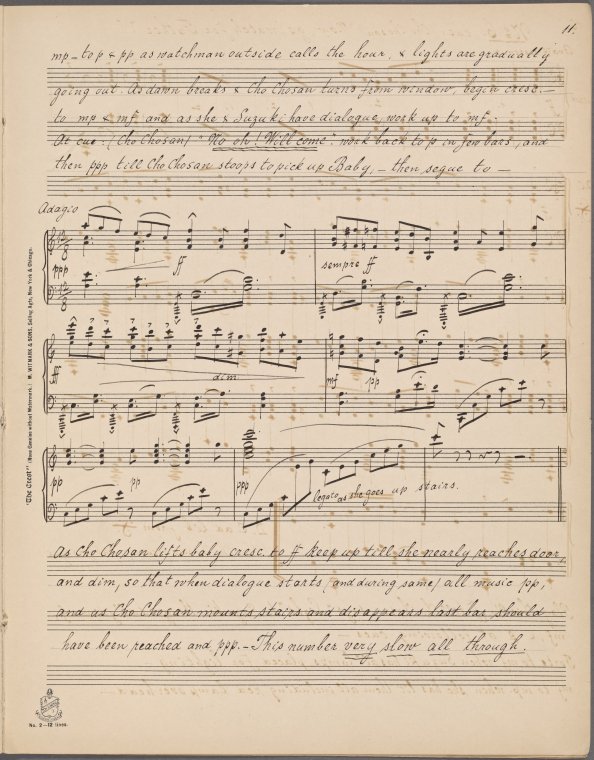 11.
mp – to p & pp as watchman outside calls the hour, & lights are gradually
going out. As dawn breaks & Cho Chosan turns from window, begin cresc. –
to mp & mf. and as she & Suzuki have dialogue, work up to mf.
At cue: (Cho Chosan) "No oh! Will come". work back to p in few bars, and
then ppp till Cho Chosan stoops to pick up Baby, – then segue to –
Adagio
12/8
ppp
ff
sempre ff
12/8
fff
dim
mf
pp
pp
pp
ppp
legato as she goes up stairs.
As Cho Chosan lifts baby cresc. to ff keep up till she nearly reaches door,
and dim, so that when dialogue starts (and during same) all music pp,
and as Cho Chosan mounts stairs and disappears last bar should
have been reached and ppp. – This number very slow all through.
"The Crest" (None Genuine without Watermark.) M. WITMARK & SONS, Selling Agts, New York & Chicago.
No. 2–12 lines.